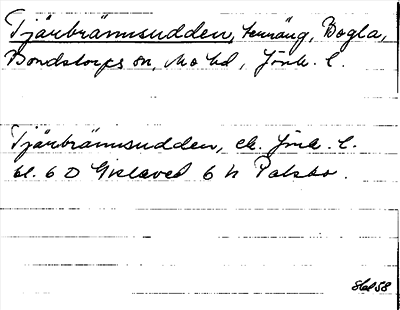 Tjärbrännsudden, terräng, Bogla,
Bondstorps sn, Mo hd, Jönk. l.
Tjärbrännsudden, ek. Jönk. l.
bl. 6 D Gislaved 6 h Palsbo.
Skd 58